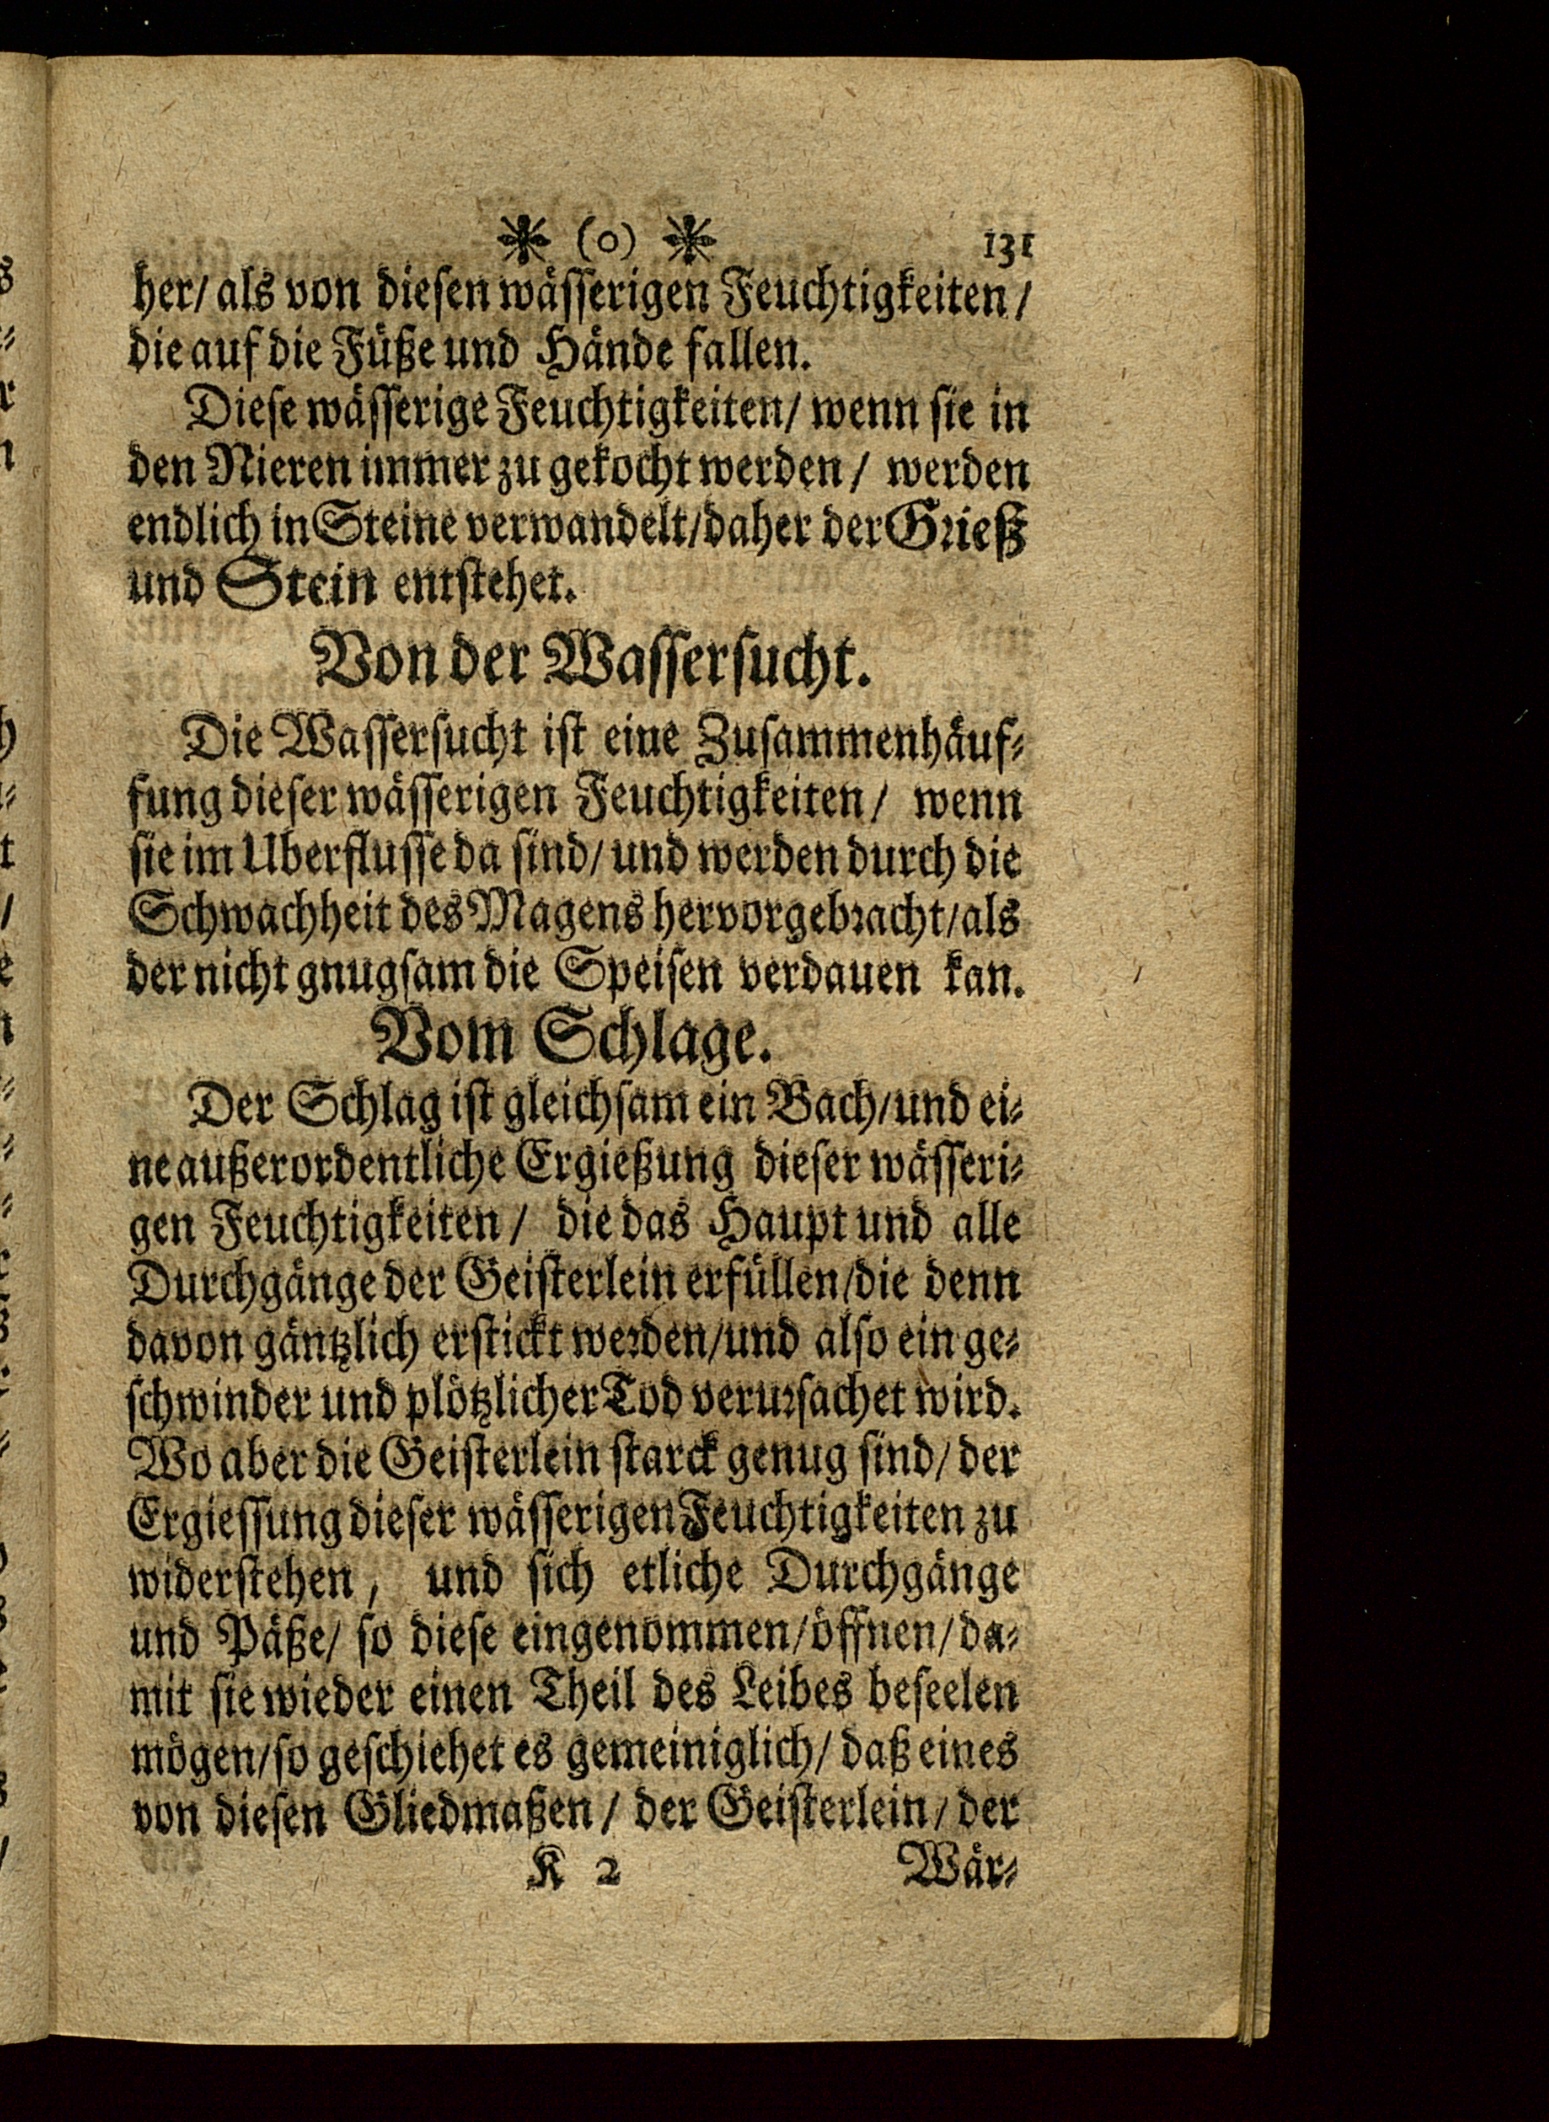 * (o) * 131
her/ als von diesen wässerigen Feuchtigkeiten/
die auf die Füße und Hände fallen.
Diese wässerige Feuchtigkeiten/ wenn sie in
den Nieren immer zu gekocht werden/ werden
endlich in Steine verwandelt/ daher der Grieß
und Stein entstehet.
Von der Wassersucht.
Die Wassersucht ist eine Zusammenhäuf-
fung dieser wässerigen Feuchtigkeiten/ wenn
sie im Uberflusse da sind/ und werden durch die
Schwachheit des Magens hervorgebracht/ als
der nicht gnugsam die Speisen verdauen kan.
Vom Schlage.
Der Schlag ist gleichsam ein Bach/ und ei-
ne außerordentliche Ergießung dieser wässeri-
gen Feuchtigkeiten/ die das Haupt und alle
Durchgänge der Geisterlein erfüllen/ die denn
davon gäntzlich erstickt werden/ und also ein ge-
schwinder und plötzlicher Tod verursachet wird.
Wo aber die Geisterlein starck genug sind/ der
Ergiessung dieser wässerigen Feuchtigkeiten zu
widerstehen, und sich etliche Durchgänge
und Päße/ so diese eingenommen/ öffnen/ da-
mit sie wieder einen Theil des Leibes beseelen
mögen/ so geschiehet es gemeiniglich/ daß eines
von diesen Gliedmaßen/ der Geisterlein/ der
K 2 Wär-